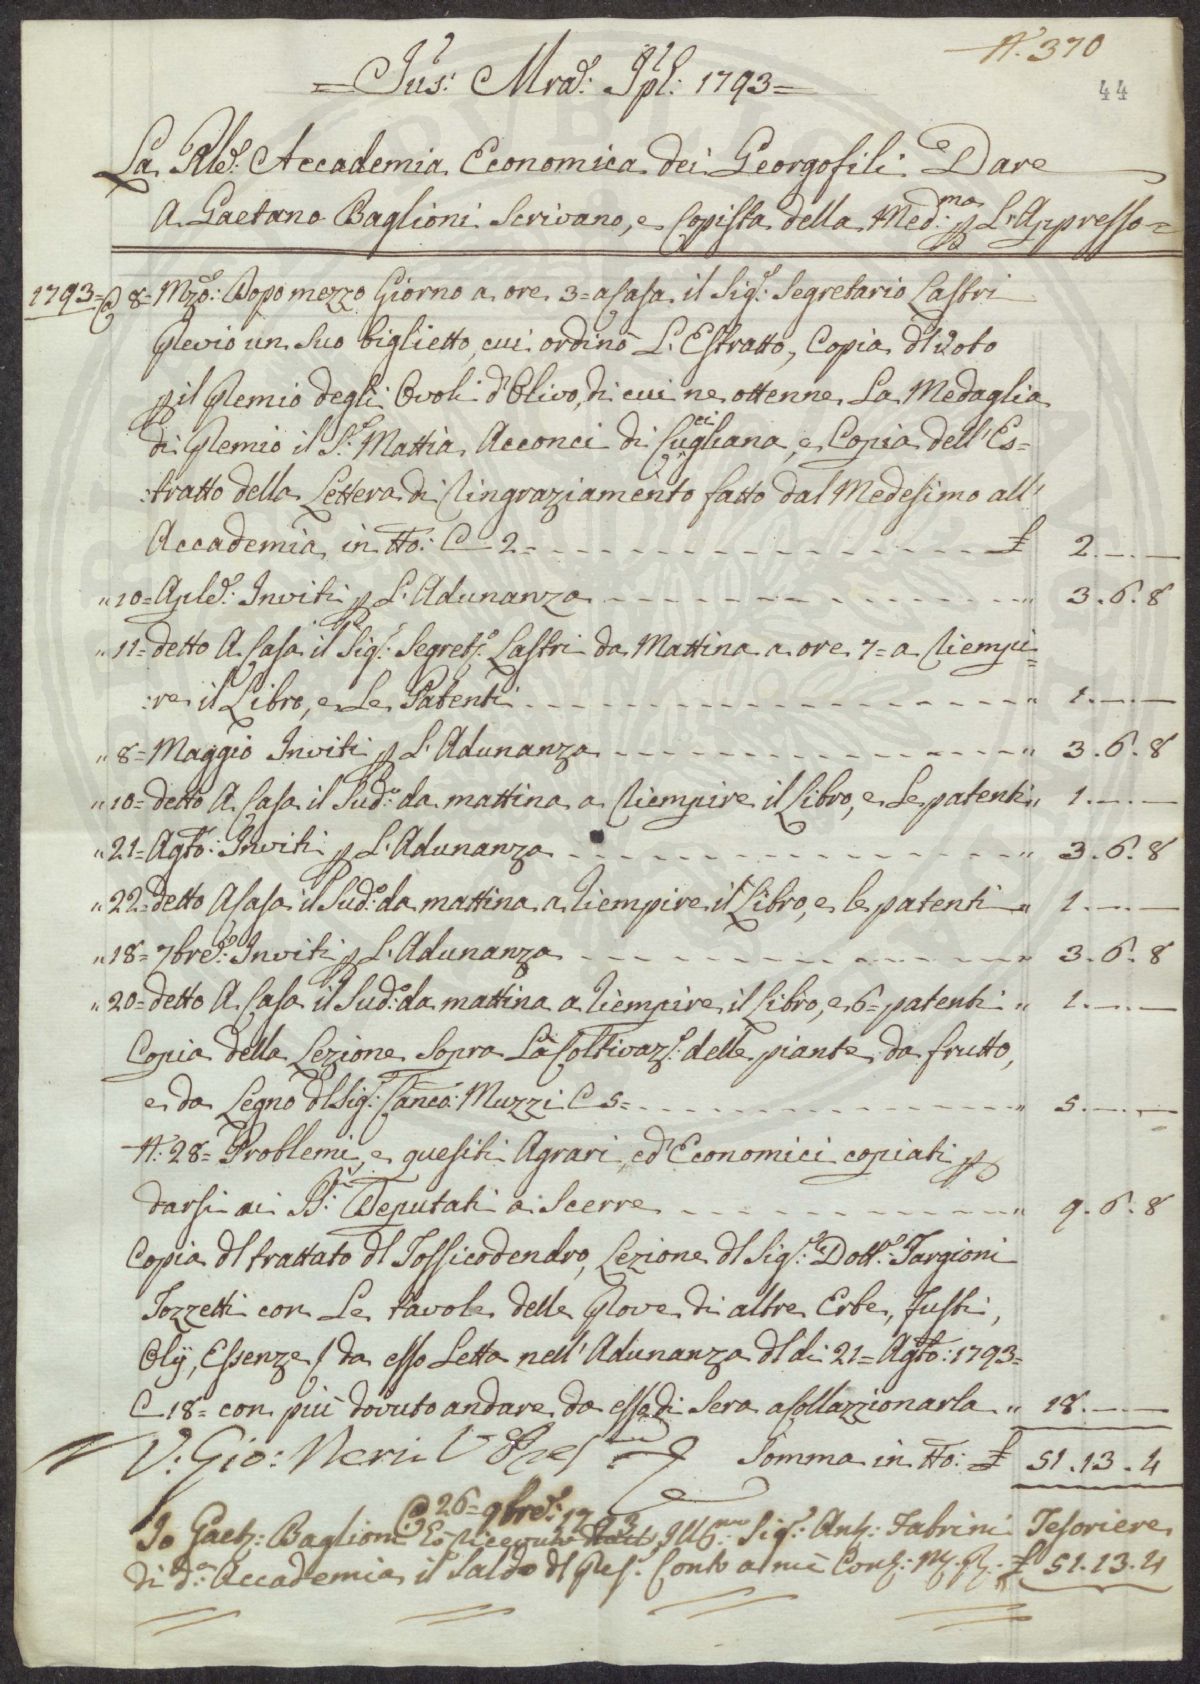 N.° 370
44
= Jus: Mrad: Jpl: 1793 =
La Rle: Accademia Economica dei Georgofili Dare
A Gaetano Baglioni Scrivano, e Copista della Med:ma p L'Appresso =
1793 = @ 8 = Mzo: Dopo mezzo Giorno a ore 3 = a Casa il Sig.r Segretario Lastri
Previo un suo biglietto, cui ordinò L'Estratto, Copia dl voto
p il Premio degli Ovoli d'Olivo, di cui ne ottenne La Medaglia
di Premio il S.r Mattia Acconci di Cucigliana, e Copia dell'Es=
:tratto della Lettera di Ringraziamento fatto dal Medesimo all'
Accademia, in tto: C 2 - - - £ 2.—.—
" 10 = Aple: Inviti p L'Adunanza - - - " 3.6.8
" 11 = detto A Casa il Sig.r Segret.o Lastri da Mattina a ore 7 = a Riempi=
:re il Libro, e Le Patenti - - - " 1.—.—
" 8 = Maggio Inviti p L'Adunanza - - - " 3.6.8
" 10 = detto A Casa il Sud.o da mattina a Riempire il Libro, e Le patenti " 1.—.—
" 21 = Agto: Inviti p L'Adunanza - - - " 3.6.8
" 22 = detto A Casa il Sud.o da mattina a Riempire il Libro, e le patenti " 1.—.—
" 18 = 7bre: Inviti p L'Adunanza - - - " 3.6.8
" 20 = detto A Casa il Sud.o da mattina a Riempire il Libro, e 6 = patenti " 1.—.—
Copia della Lezione sopra La Coltivaz.e delle piante da frutto,
e da Legno dl Sig.r Canco: Muzzi C 5 = - - - " 5.—.—
N.° 28 = Problemi, e quesiti Agrari, ed Economici copiati p
darsi ai SS.ri Deputati a Scerre - - - " 9.6.8
Copia dl trattato dl Tossicodendro, Lezione dl Sig.r Dott.r Targioni
Tozzetti con Le tavole delle Prove di altre Erbe, Fusti,
Olij, Essenze / da esso Letta nell'Adunanza dl di 21 = Agto: 1793 =
C 18 = con più dovuto andare da esso di Sera a Collazzionarla " 18.—.—
V: Gio: Neri
Somma in tto: £ 51.13.4
@ 26 = 9bre: 1793
Io Gaet.o Baglioni ho ricevuto Ill.mo Sig.r Ant.o Fabrini Tesoriere
di d.a Accademia il Saldo dl Pres.e Conto a me Cont.i £ 51.13.4